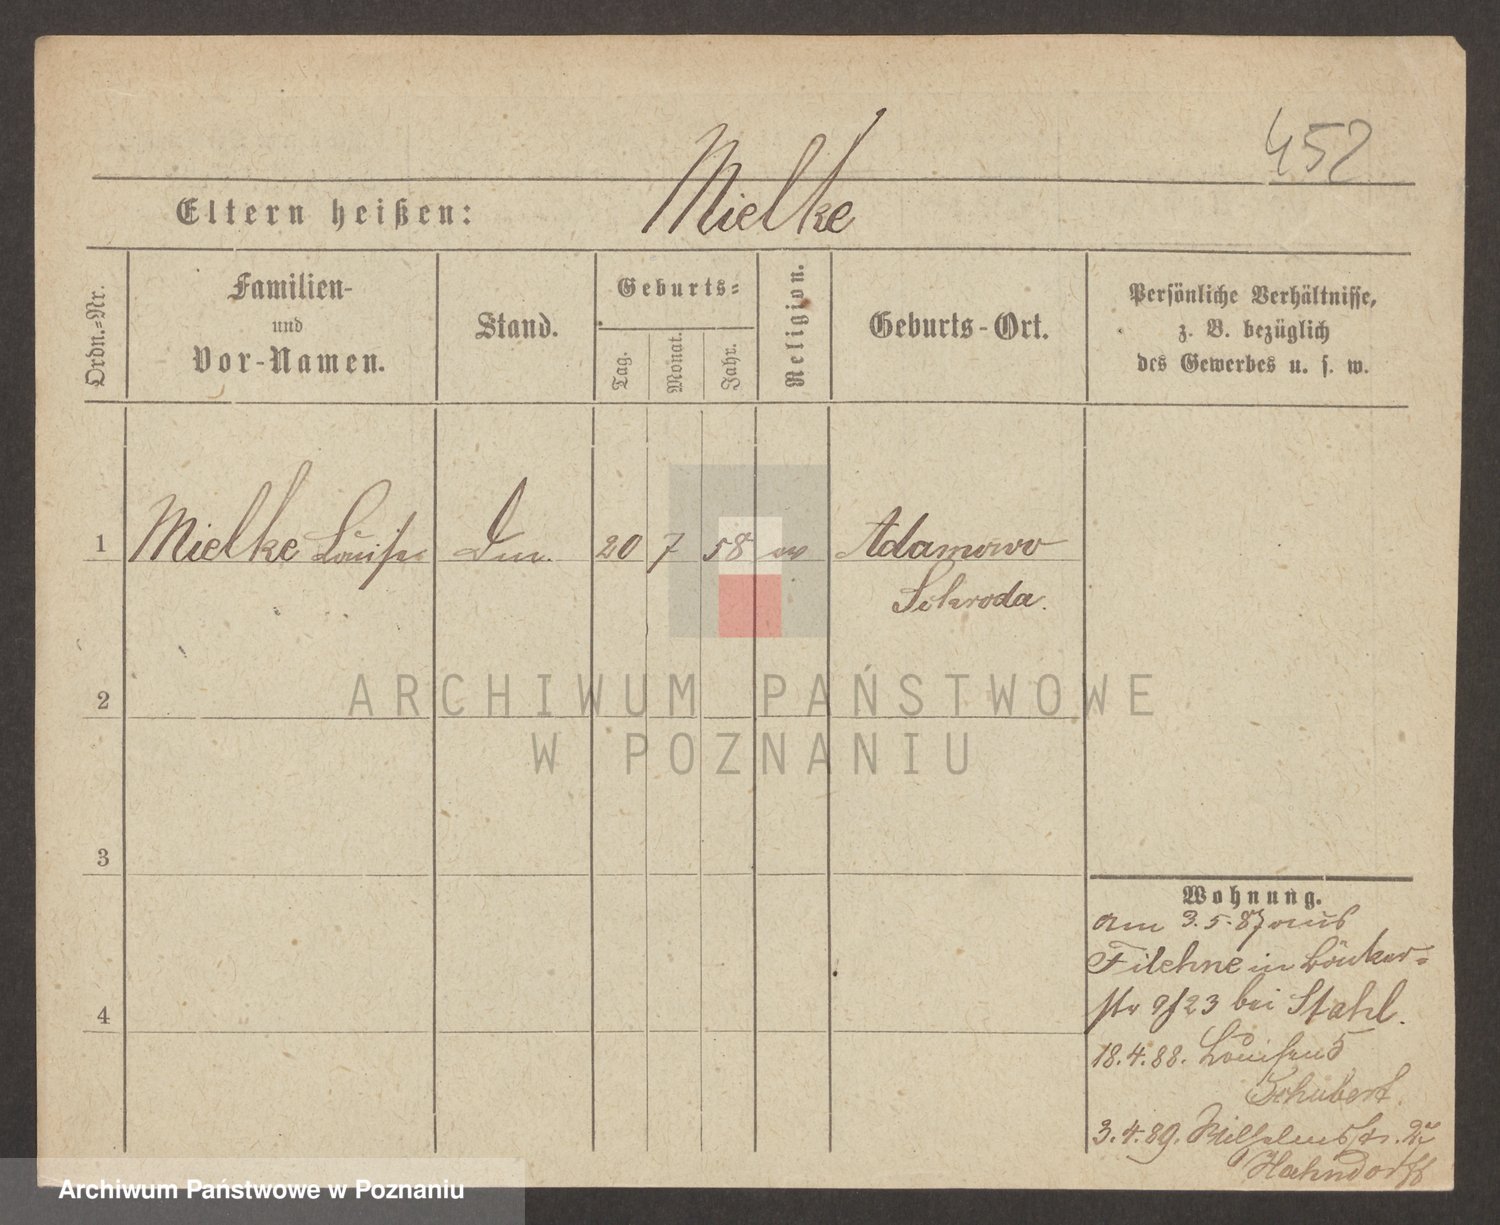 452
Eltern heißen: Mielke
Ordn.-Nr.
Familien-
und
Vor-Namen.
Stand.
Geburts-
Tag.
Monat.
Jahr.
Religion.
Geburts-Ort.
Persönliche Verhältnisse,
z. B. bezüglich
des Gewerbes u. s. w.
1 Mielke Louise 20 7 58 ev Adamowo
Schroda.
2
3
4
Wohnung.
am 3.5.87 aus
Filehne in Bäcker-
str 9/23 bei Stahl.
18.4.88. Louisen 5
Schubert.
3.4.89. Wilhelmstr.
Hahndorff
ARCHIWUM PAŃSTWOWE
W POZNANIU
Archiwum Państwowe w Poznaniu